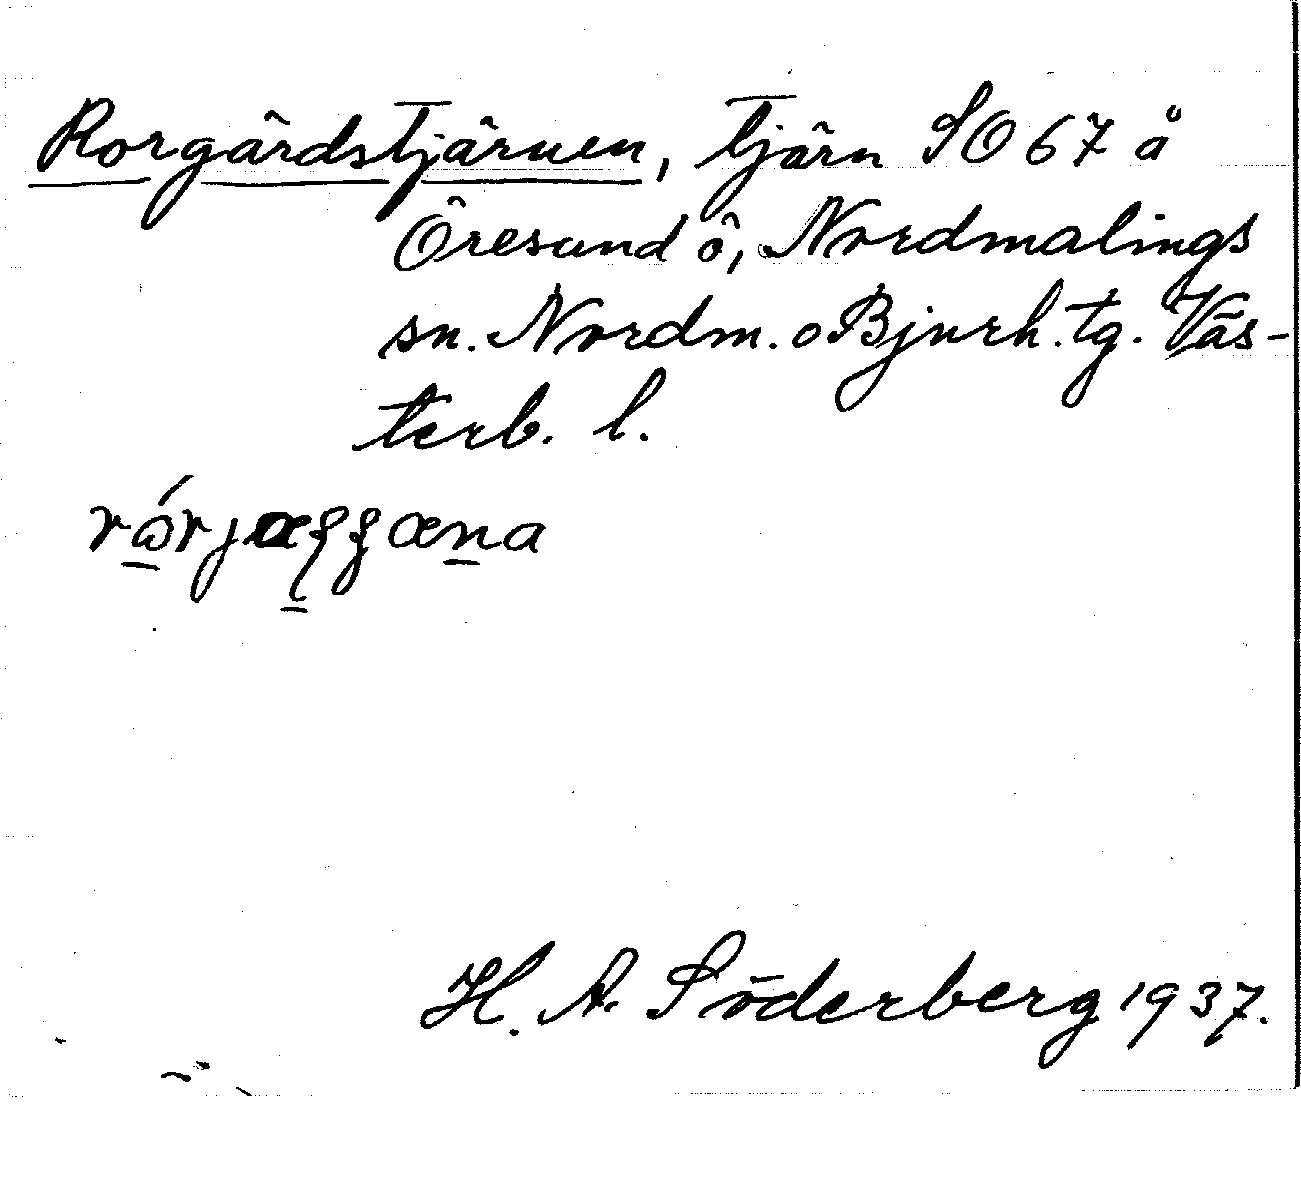 Rorgårdstjärnen, tjärn SO 67 å
Öresund ö, Nordmalings
sn. Nordm. o Bjurh. tg. Väs-
terb. l.
H. A. Söderberg 1937.